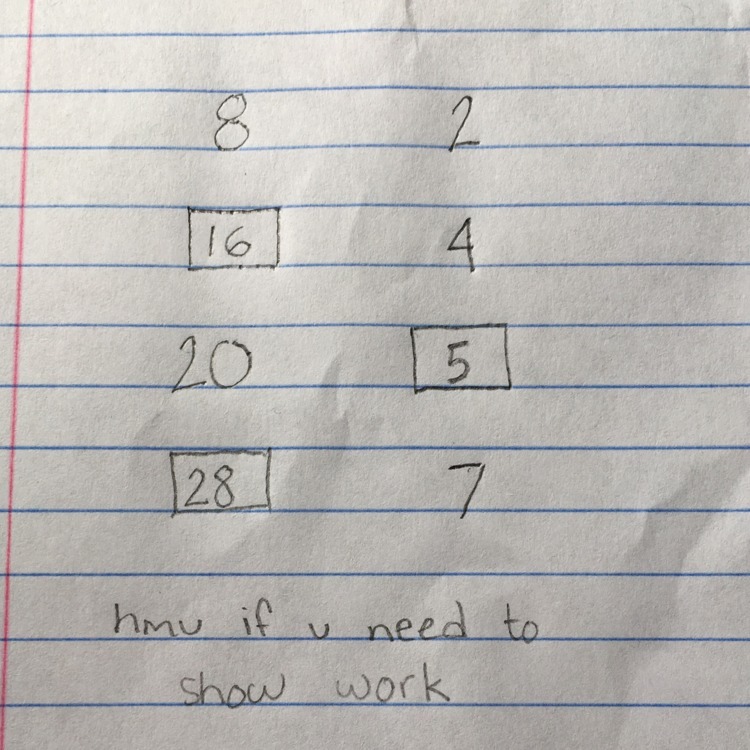 8 2
16 4
20 5
28 7
hmu if u need to
show work